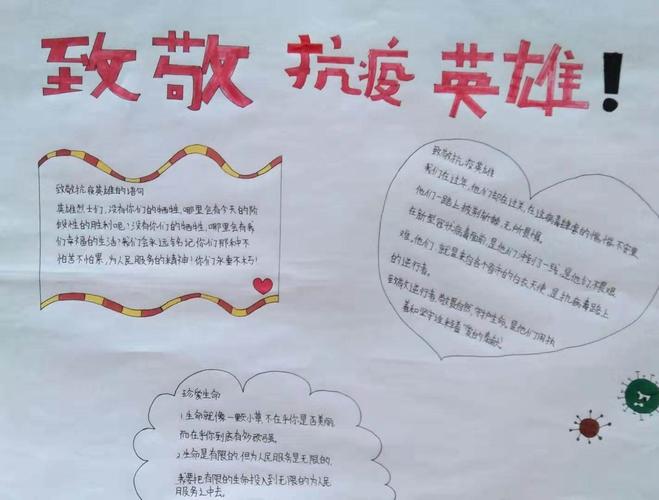 致敬抗疫英雄!
致敬抗疫英雄的语句
英雄烈士们,没有你们的牺牲,哪里会有今天的阶
段性的胜利呢?没有你们的牺牲,哪里会有我
们幸福的生活?我们会永远铭记你们那种不
怕苦不怕累,为人民服务的精神!你们永垂不朽!
致敬抗疫英雄
我们在过年,他们却在过关,在这病毒肆虐的慌慌不安里
他们一路上披荆斩棘,无所畏惧。
在新型冠状病毒面前,是他们冲在第一线,是他们不畏艰
难,他们就是来自各个省市的白衣天使,是抗病毒路上
的逆行者。
致敬逆行者,敬畏自然,守护生命,是他们用执
着和坚守诠释着"爱的奉献"
珍爱生命
1.生命就像一颗小草,不在乎你是否美丽
而在乎你到底有多顽强。
2.生命是有限的,但为人民服务是无限的,
我要把有限的生命投入到无限的为人民
服务之中去。